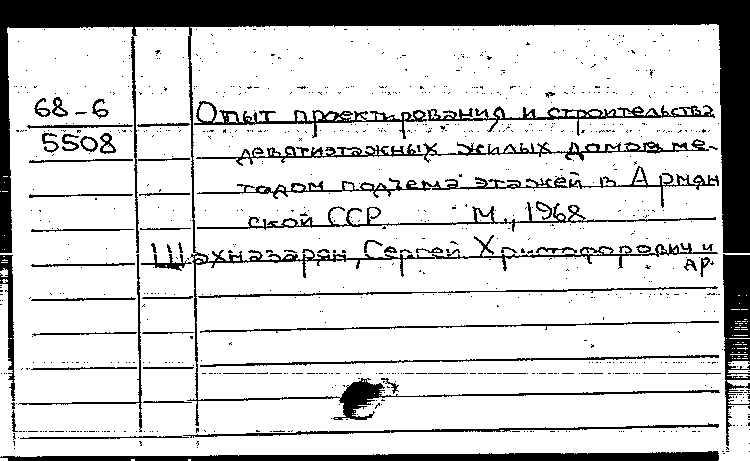 68-6
5508
Опыт проектирования и строительства
девятиэтажных жилых домов ме-
тодом подъема этажей в Армян
ской ССР. М., 1968
Шахназарян, Сергей Христофорович и
др.